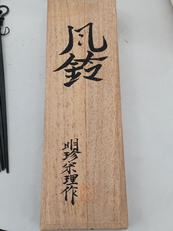 風鈴
明珍宗理作